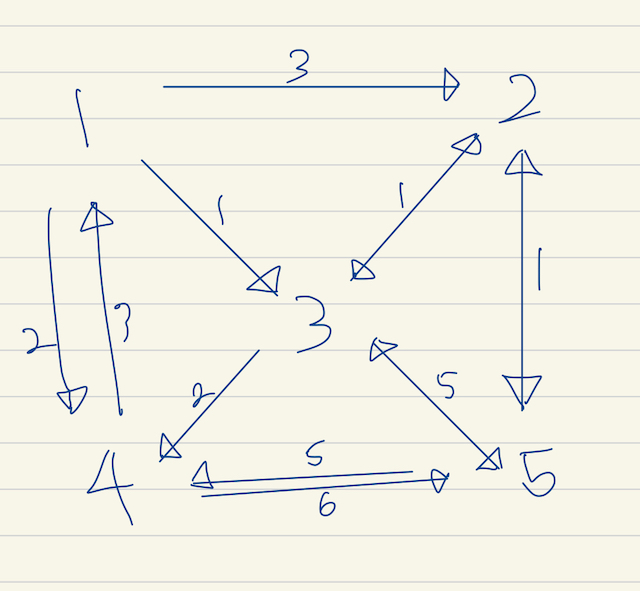 3
1 2
1 1
1
2 3 3
5
2
5
4 5
6